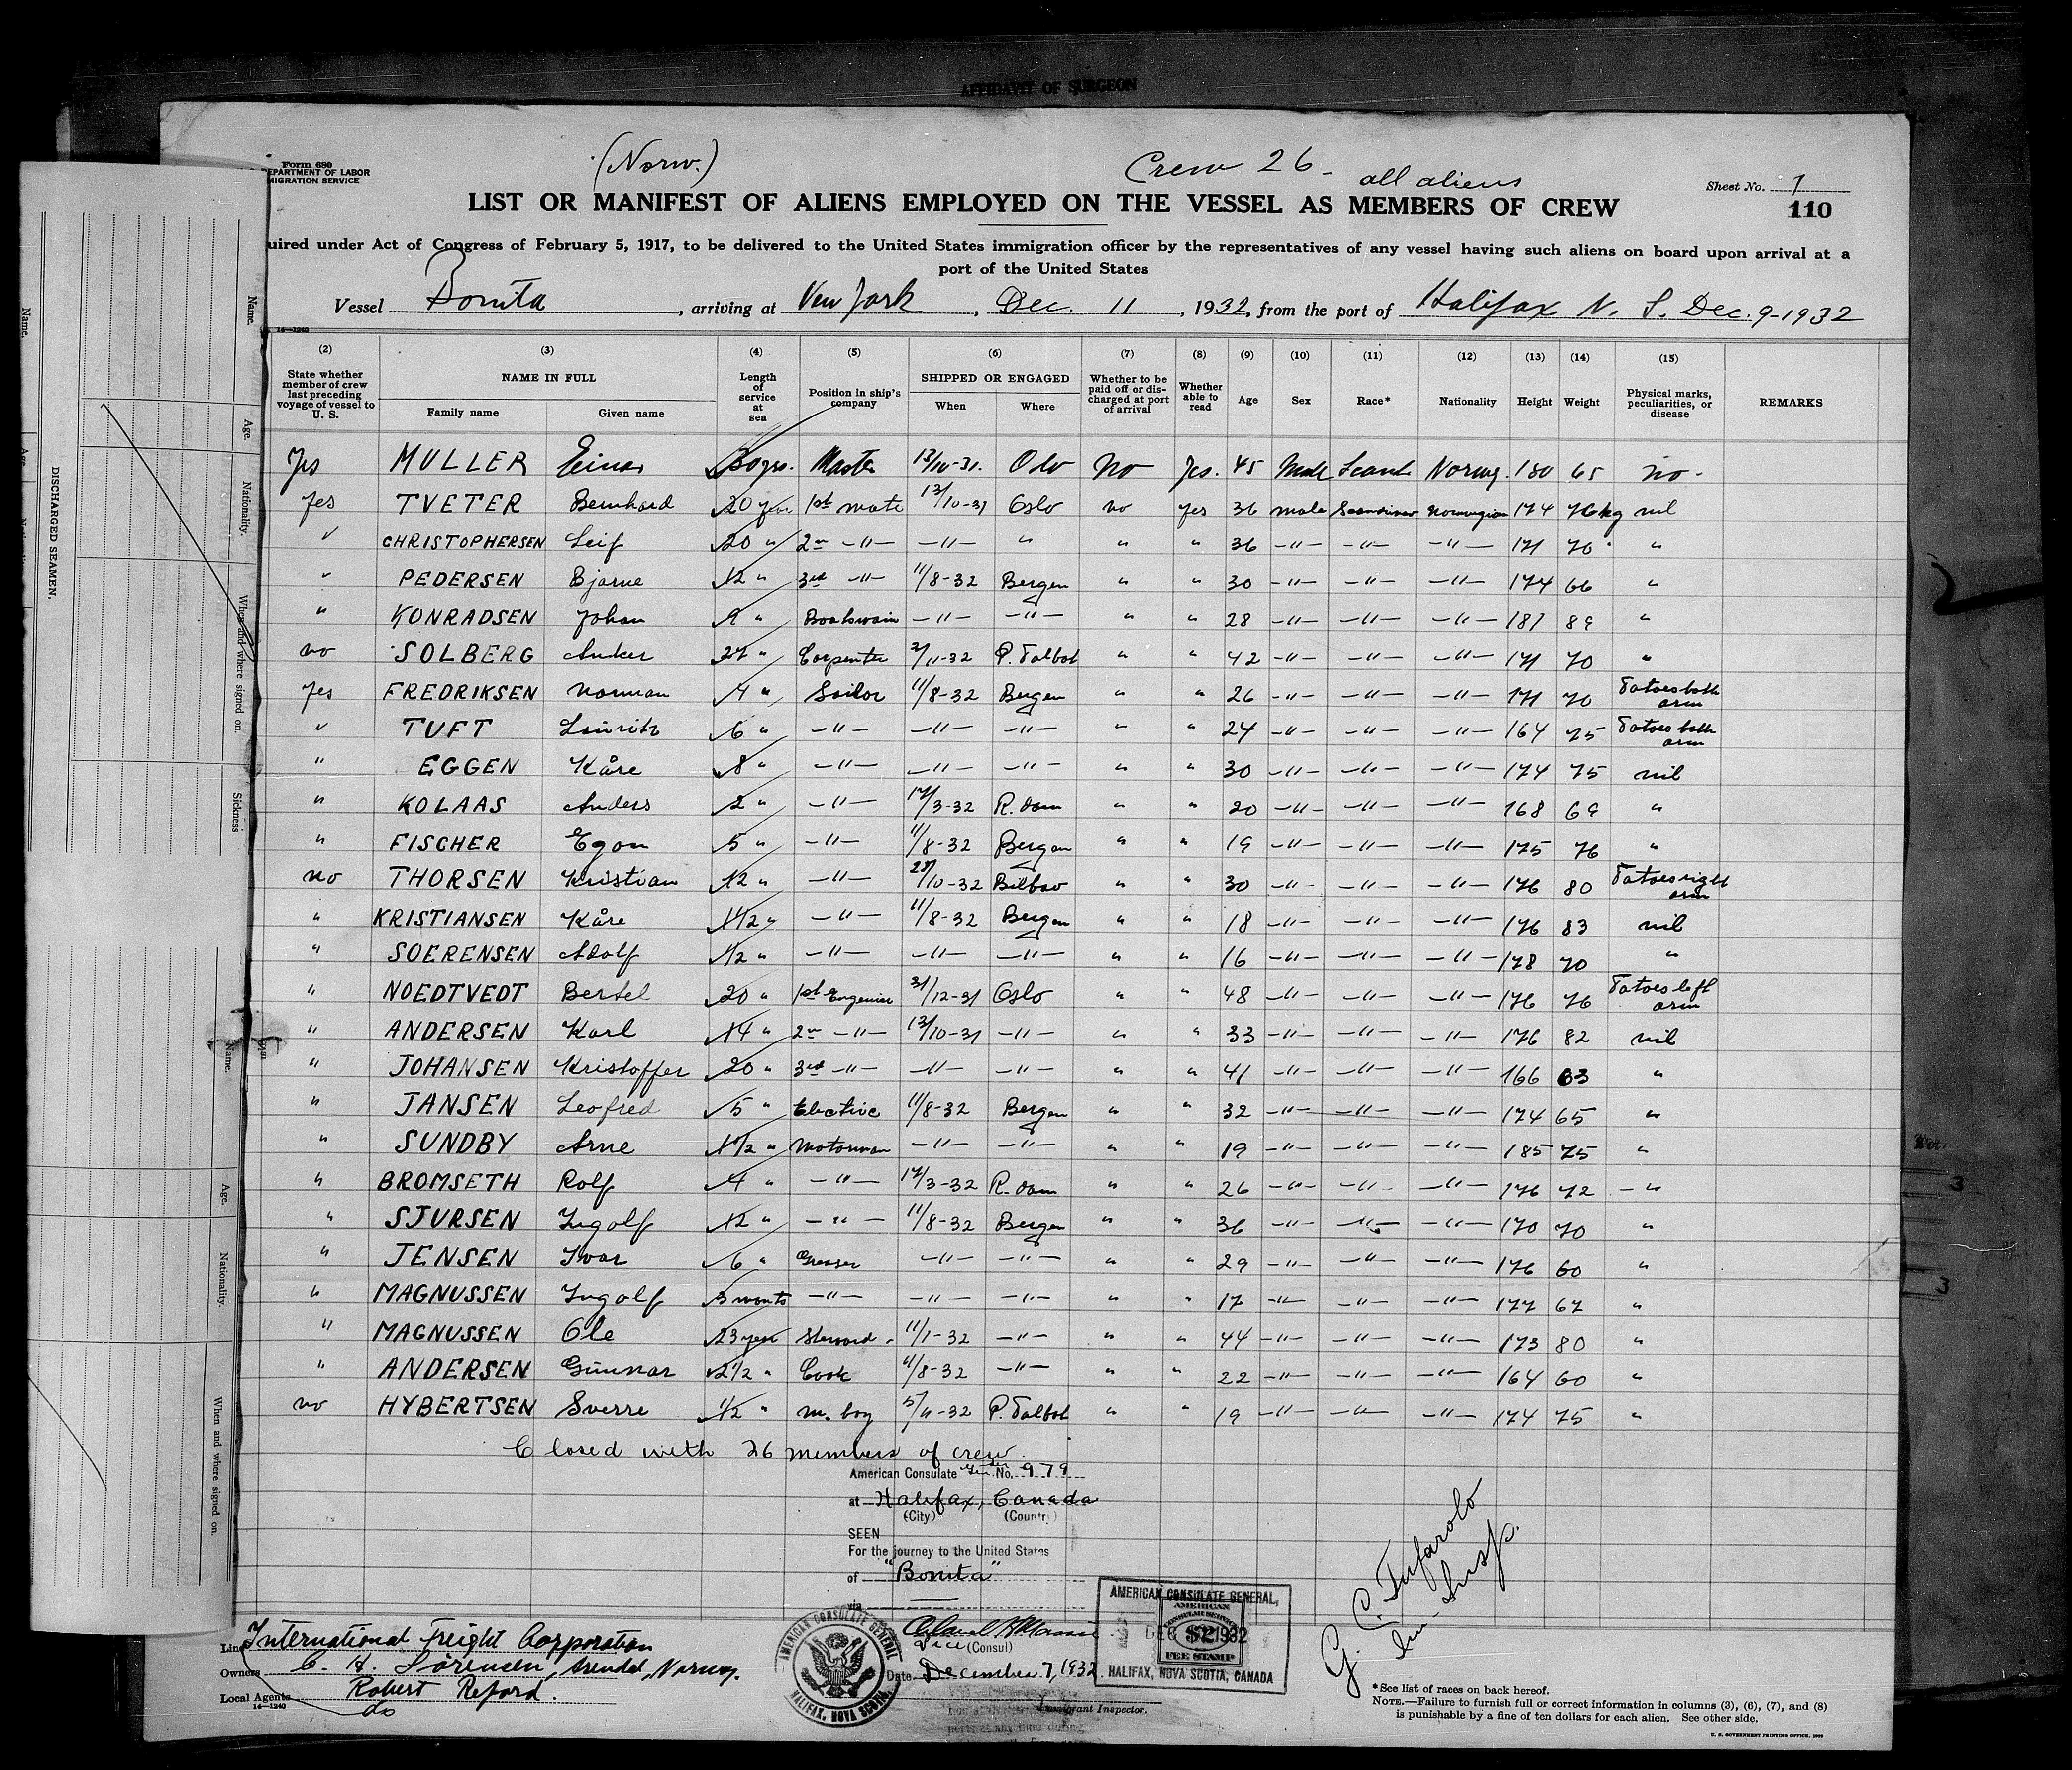 AFFIDAVIT OF SURGEON
Form 680
EPARTMENT OF LABOR
MIGRATION SERVICE
(Norw.)
Crew 26 - all aliens
Sheet No. 1
110
LIST OR MANIFEST OF ALIENS EMPLOYED ON THE VESSEL AS MEMBERS OF CREW
uired under Act of Congress of February 5, 1917, to be delivered to the United States immigration officer by the representatives of any vessel having such aliens on board upon arrival at a
port of the United States
Vessel Bonita, arriving at New York, Dec. 11, 1932, from the port of Halifax N. S. Dec. 9-1932
14—1240
(2) (3) (4) (5) (6) (7) (8) (9) (10) (11) (12) (13) (14) (15)
State whether member of crew last preceding voyage of vessel to U. S. NAME IN FULL Family name Given name Length of service at sea Position in ship's company SHIPPED OR ENGAGED When Where Whether to be paid off or discharged at port of arrival Whether able to read Age Sex Race* Nationality Height Weight Physical marks, peculiarities, or disease REMARKS
Yes MULLER Einar 30 yrs. Master 13/10-31. Oslo No Yes. 45 Male Scand Norweg. 180 65 no-
Yes TVETER Bernhard 20 year 1st mate 13/10-31 Oslo no yes 36 male Scandinav Norwegian 174 76 kg nil
" CHRISTOPHERSEN Leif 20 " 2n -"- -"- " " " 36 -"- -"- -"- 171 70 "
" PEDERSEN Bjarne 12 " 3rd -"- 11/8-32 Bergen " " 30 -"- -"- -"- 174 66 "
" KONRADSEN Johan 9 " Boatswain -"- -"- " " 28 -"- -"- -"- 181 89 "
no SOLBERG Anker 27 " Carpenter 2/11-32 P. Talbot " " 42 -"- -"- -"- 171 70 "
Yes FREDRIKSEN Norman 4 " Sailor 11/8-32 Bergen " " 26 -"- -"- -"- 171 70 Tatoes both arm
" TUFT Lauritz 6 " -"- -"- -"- " " 24 -"- -"- -"- 164 75 Tatoes both arm
" EGGEN Kåre 8 " -"- -"- -"- " " 30 -"- -"- -"- 174 75 nil
" KOLAAS Anders 2 " -"- 17/3-32 R. dam " " 20 -"- -"- -"- 168 69 "
" FISCHER Egon 5 " -"- 11/8-32 Bergen " " 19 -"- -"- -"- 175 76 "
no THORSEN Kristian 12 " -"- 10-32 Bilbao " " 30 -"- -"- -"- 176 80 Tatoes right arm
" KRISTIANSEN Kåre 1 1/2 " -"- 11/8-32 Bergen " " 18 -"- -"- -"- 176 83 nil
" SOERENSEN Adolf 1/2 " -"- -"- -"- " " 16 -"- -"- -"- 178 70 "
" NOEDTVEDT Bertel 20 " 1st Engenier 31/12-31 Oslo " " 48 -"- -"- -"- 176 76 Tatoes left arm
" ANDERSEN Karl 14 " 2n -"- 13/10-31 -"- " " 33 -"- -"- -"- 176 82 nil
" JOHANSEN Kristoffer 20 " 3rd -"- -"- -"- " " 41 -"- -"- -"- 166 63 "
" JANSEN Leofred 5 " Electric 11/8-32 Bergen " " 32 -"- -"- -"- 174 65 "
" SUNDBY Arne 1 1/2 " Motorman -"- -"- " " 19 -"- -"- -"- 185 75 "
" BROMSETH Rolf 4 " -"- 17/3-32 R. dam " " 26 -"- -"- -"- 176 72 -"
" SJURSEN Ingolf 12 " -"- 11/8-32 Bergen " " 36 -"- -"- -"- 170 70 "
" JENSEN Ivar 6 " Greaser -"- -"- " " 29 -"- -"- 176 60 "
" MAGNUSSEN Ingolf 3 monts -"- -"- -"- " " 17 -"- -"- -"- 177 67 "
" MAGNUSSEN Ole 23 year Steward - 11/1-32 -"- " " 44 -"- -"- -"- 173 80 "
" ANDERSEN Gunnar 2 1/2 " Cook 11/8-32 -"- " " 22 -"- -"- -"- 164 60 "
no HYBERTSEN Sverre 1/2 " m. boy 5/11-32 P. Talbot " " 19 -"- -"- -"- 174 75 "
Closed with 26 members of crew
American Consulate Gen. No. 979
at Halifax, Canada
(City) (Country)
SEEN
For the journey to the United States
of "Bonita"
via
Vice (Consul)
Date December 7, 1932
Immigrant Inspector.
AMERICAN CONSULATE GENERAL
HALIFAX, NOVA SCOTIA
AMERICAN CONSULATE GENERAL,
AMERICAN
CONSULAR SERVICE
$2
DEC 7 1932
FEE STAMP
HALIFAX, NOVA SCOTIA, CANADA
G. C. Tufarolo
Im. Insp.
Line International Freight Corporation
Owners C. H. Sörensen, Arendal, Norway.
Local Agents Robert Reford.
do
14—1240
*See list of races on back hereof.
NOTE.—Failure to furnish full or correct information in columns (3), (6), (7), and (8)
is punishable by a fine of ten dollars for each alien. See other side.
U. S. GOVERNMENT PRINTING OFFICE. 1929
DISCHARGED SEAMEN.
Name.
Age.
Nationality.
When and where signed on.
Sickness
Name.
Age.
Nationality.
When and where signed on.
Name.
2
3
3